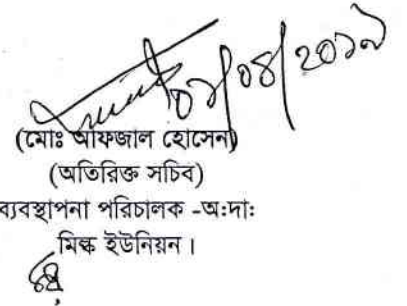 ০১/০৪/২০১৯
(মোঃ আফজাল হোসেন)
(অতিরিক্ত সচিব)
ব্যবস্থাপনা পরিচালক -অ:দাঃ
মিল্ক ইউনিয়ন।